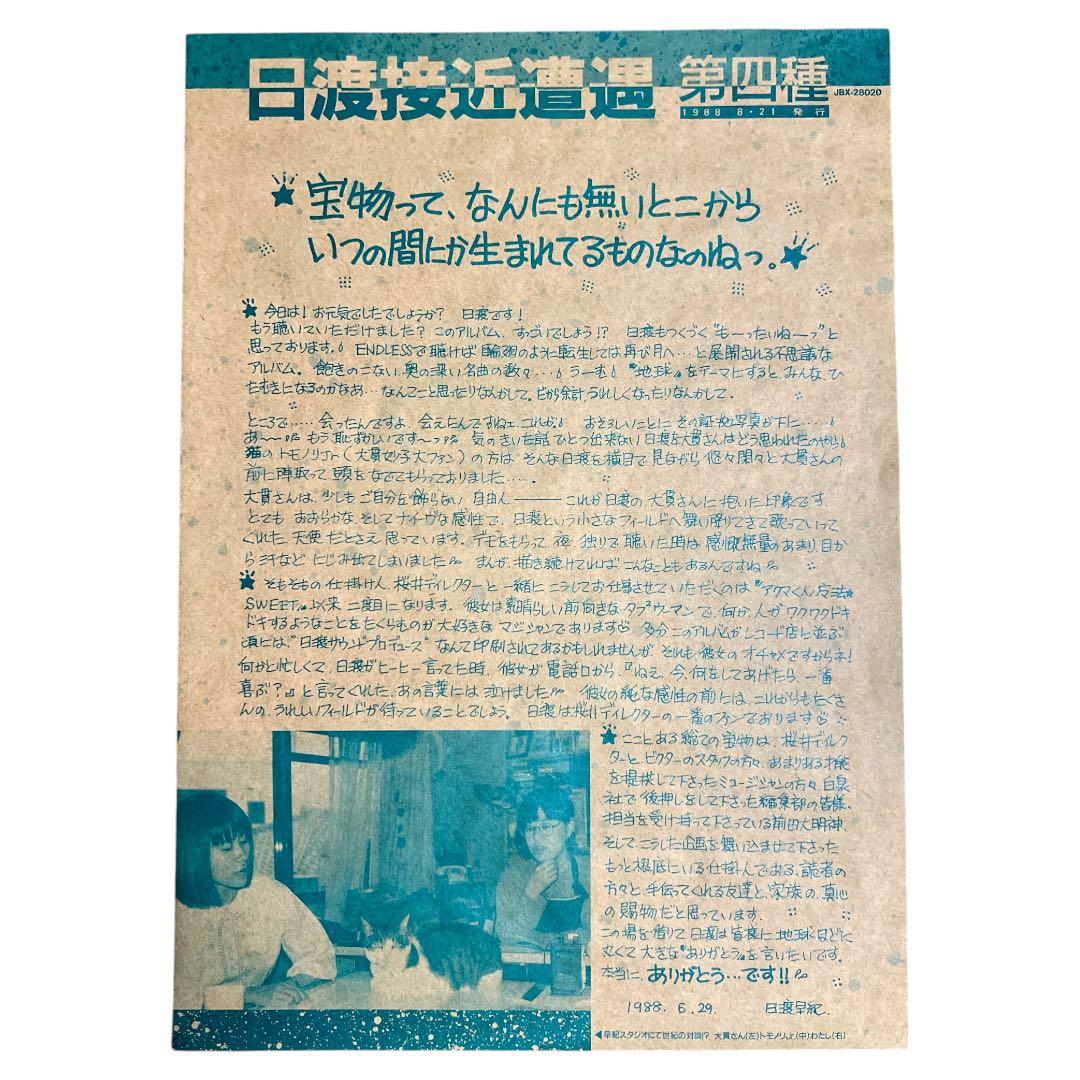 日渡接近遭遇 第四種 JBX-28020
1988 8・21 発行
★宝物って、なんにも無いとこから
いつの間にか生まれてるものなのねっ。★
★今日は！お元気でしたでしょうか？ 日渡です！
もう聴いていただけました？このアルバム、すっごいでしょう!? 日渡もつくづく“もーったいねーっ”と
思っております。ENDLESSで聴けば輪廻のように転生しては再び月へ…と展開される不思議な
アルバム。飽きのこない、奥の深い名曲の数々…。うーむ。『地球』をテーマにすると、みんな、ひ
たむきになるのかなあ…なんてこと思ったりなんかして。だから余計、うれしくなったりなんかして。
ところで……会ったんですよ、会えたんですねェ、これが。おそろしいことに その証拠写真が下に……
あ〜〜 もう恥ずかしいです〜っ 気のきいた話ひとつ出来ない日渡を大貫さんはどう思われたのやら
猫のトモノリJr(大貫妙子大ファン)の方は そんな日渡を横目で見ながら 悠々閑々と大貫さんの
前に陣取って 頭をなでてもらっておりました……。
大貫さんは、少しもご自分を飾らない 自由人――これが日渡の、大貫さんに抱いた印象です。
とても おおらかな、そしてナイーヴな感性で、日渡という小さなフィールドへ舞い降りてきて歌っていって
くれた 天使 だとさえ 思っています。デモをもらって 夜、独りで 聴いた時は 感慨無量のあまり、目か
ら汗など にじみ出てしまいました まんが、描き続けてれば こんなこともあるんですね
★そもそもの 仕掛け人、桜井ディレクターと 一緒に こうしてお仕事させていただくのは“アクマくん魔法★
SWEET”以来 二度目になります。彼女は素晴らしい前向きな タフウーマンで、何か、人が ワクワクドキ
ドキするようなことを たくらむのが 大好きな マジシャンであります 多分 このアルバムが レコード店に並ぶ
頃には、“日渡サウンドプロデュース” なんて印刷されてあるかもしれませんが、それも 彼女の オチャメですからネ！
何かと忙しくて、日渡がヒーヒー言ってた時、彼女が 電話口から、『ねえ、今、何をしてあげたら、一番
喜ぶ？』と言ってくれた、あの言葉には 泣けました 彼女の純な感性の前には、これからもたくさ
んの、うれしいフィールドが 待っていることでしょう。日渡は桜井ディレクターの一番のファンであります
★ここにある総ての宝物は、桜井ディレク
ターと、ビクターのスタッフの方々、あまりある才能
を提供して下さったミュージシャンの方々、白泉
社で後押しをして下さった編集部の皆様、
担当を受け持って下さっている前田大明神、
そして、こうした企画を舞い込ませて下さった
もっと根底にいる仕掛人である、読者の
方々と、手伝ってくれる友達と、家族の、真心
の賜物だと思っています。
この場を借りて日渡は皆様に 地球ほどに
丸くて大きな“ありがとう”を言いたいです。
本当に、ありがとう…です!!
1988. 6. 29. 日渡早紀
◀早紀スタジオにて世紀の対談!? 大貫さん(左)トモノリJr.(中)わたし(右)